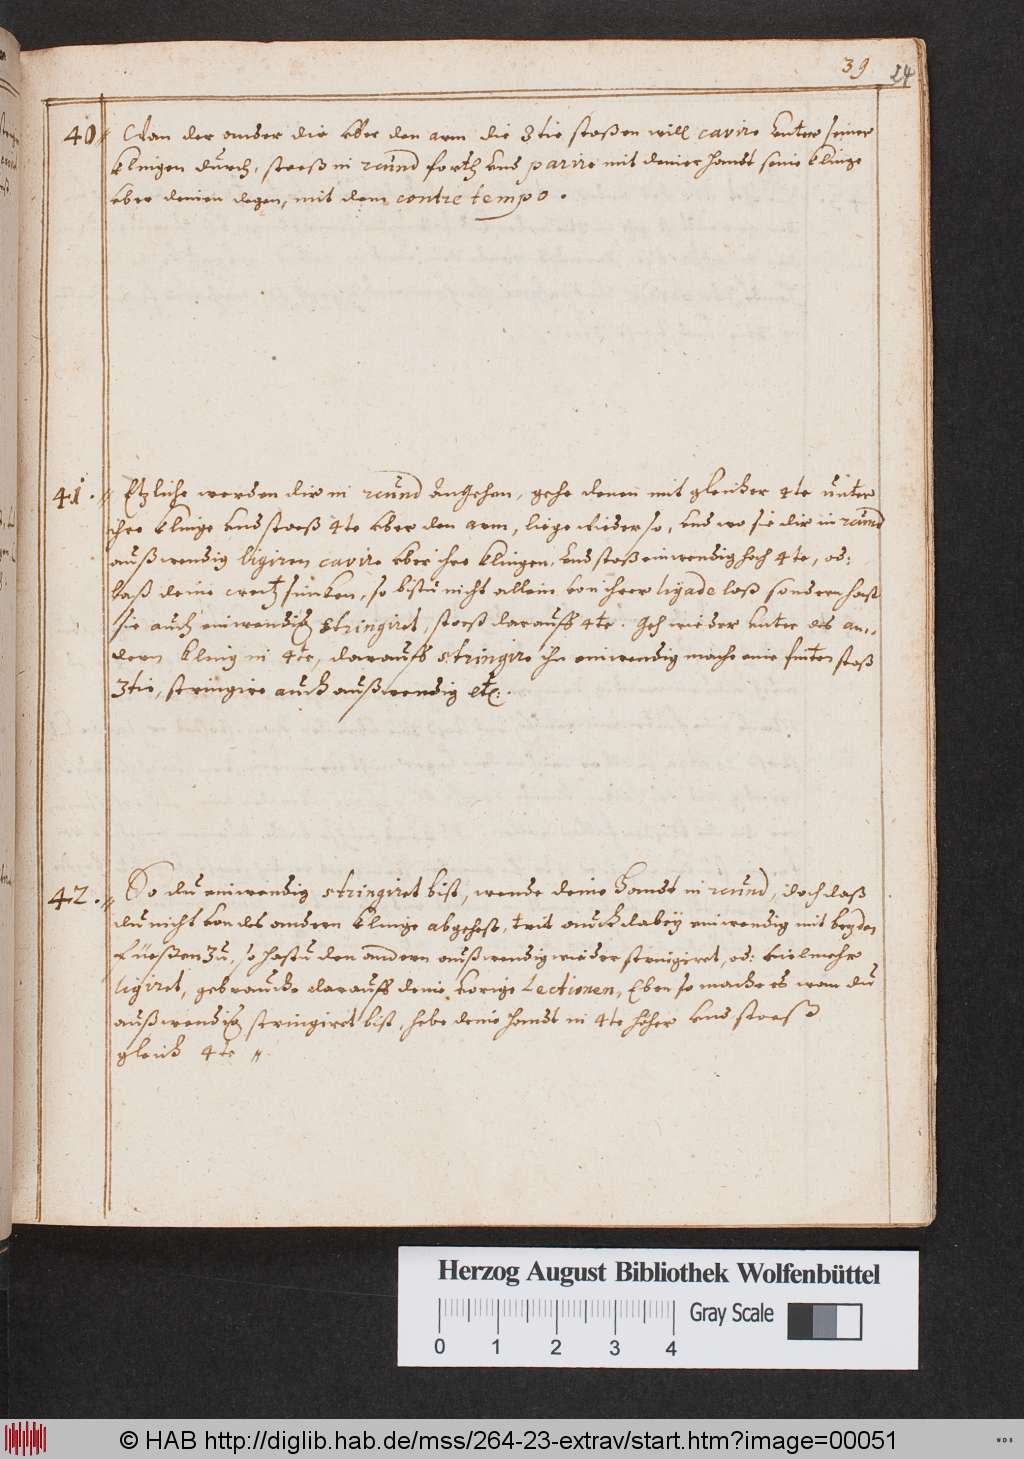 39 24
40 // Wan der ander die vber den arm die 3tie stoßen will cavire vnter seiner
klingen durch, stoeß in 2cund forth vnd parire mit deiner handt seine klinge
vber deinen degen, mit dem contre tempo.
41. // Etzliche werden dir in 2cund angehen, gehe denen mit gleicher 4te vnter
ihre klinge vnd stoeß 4te vber den arm, liege wieder so, vnd wo sie dir in 2cund
außwendig ligiren cavire vber ihre klingen, vnd stoß einwendig hoch 4te, od:
laß deine creutz sincken, so bistu nicht allein von ihrer ligade loß sondern hast
sie auch einwendig stringiret, stoeß darauff 4te. Geh wieder vnter des an-
dern kling in 4te, darauff stringire ihn einwendig mache eine finten stoß
3tie, stringire auch außwendig etc:.
42. // So du einwendig stringiret bist, wende deine handt in 2cund, doch daß
du nicht von des andern klinge abgehest, trit auch dabey einwendig mit beyden
Füeßen zu, so hastu den andern außwendig wieder stringiret, od: vielmehr
ligirt, gebrauche darauff deine vorige Lectionen, Eben so mache es wan du
außwendig stringiret bist, hebe deine handt in 4te höher vnd stoeß
gleich 4te //.
Herzog August Bibliothek Wolfenbüttel
Gray Scale
0 1 2 3 4
© HAB http://diglib.hab.de/mss/264-23-extrav/start.htm?image=00051